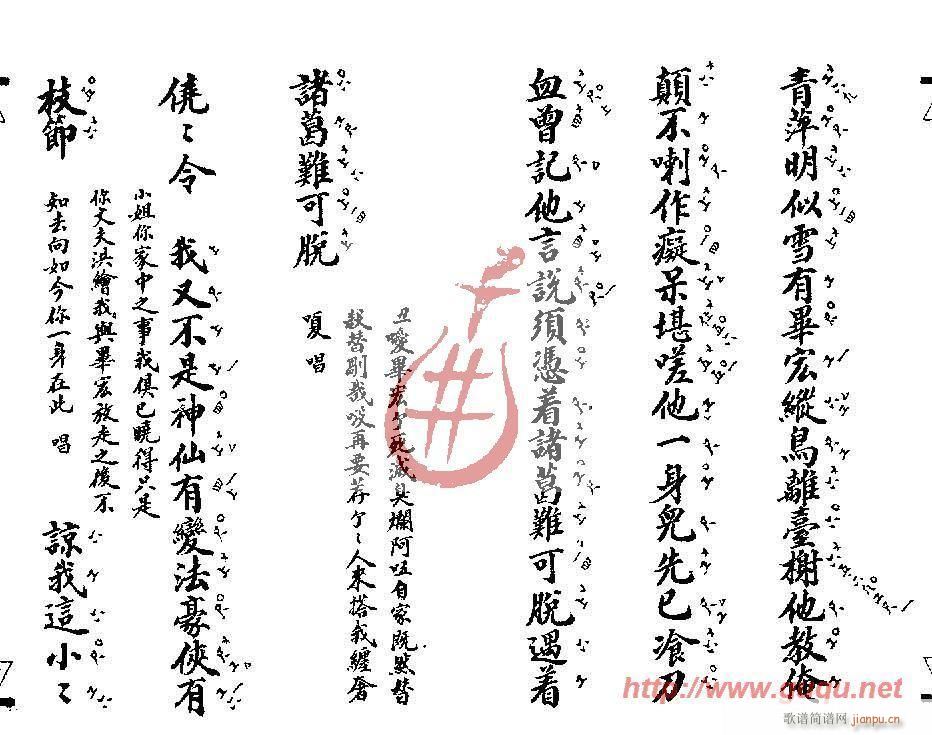 青萍明似雪有畢宏縱鳥離臺榭他教俺
顛不喇作癡呆堪嗟他一身兒先已飡刀
血曾記他言說須憑着諸葛難可脫遇着
丑嗳畢宏个死減具爛阿呸自家既然替
殺替剮哉咬再要荐个人來搭我纏
諸葛難可脫
唱
僥〻令 我又不是神仙有變法豪俠有
小姐你家中之事我俱已曉得只是
你丈夫洪繪我與畢宏放走之後不
知去向如今你一身在此 唱
枝節
諒我這小〻
http://www.guqu.net
歌谱简谱网 jianpu.cn